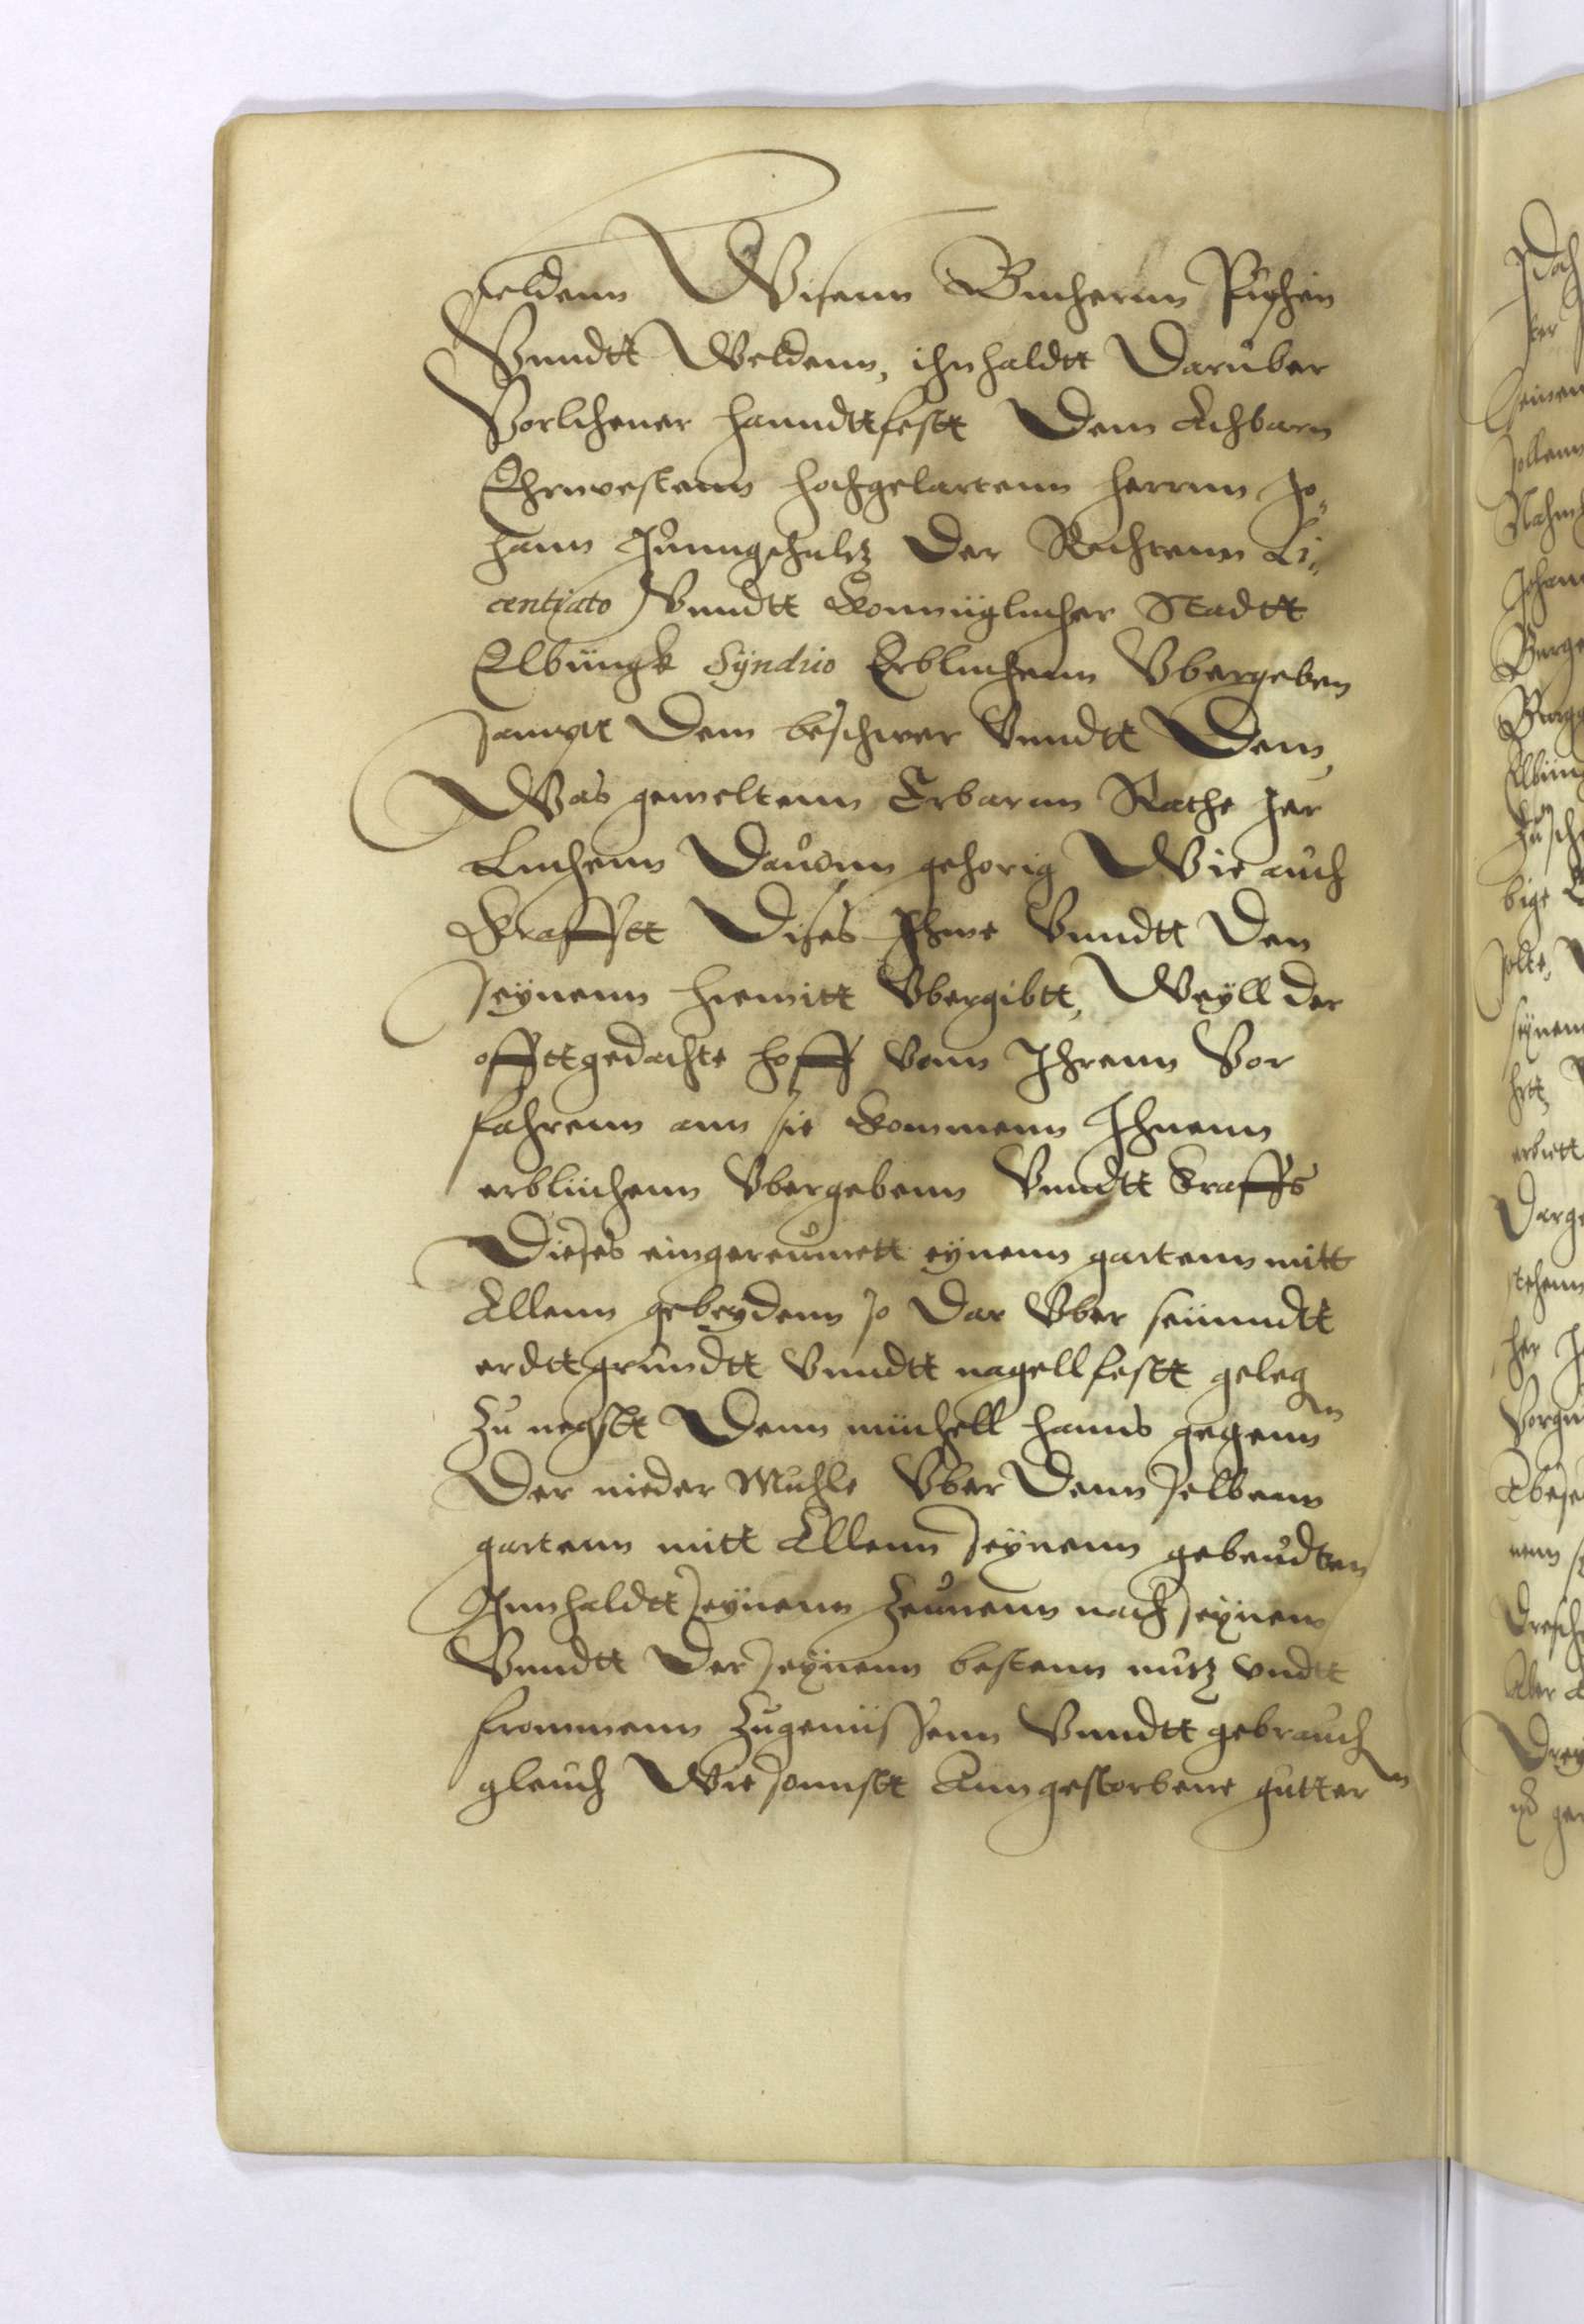 feldenn Wisenn Bucherenn Puschen
Vnndtt Weldenn, ihnhaldtt Daruber
Vorlihener hanndtfestt Dem Achbarn
Ehrnvestenn hochgelartenn herrnn Jo„
hann Jŭnngschultz Der Rechtenn Li„
centiato Vnndtt Konniglicher Stadtt
Elbingk Syndico Erblichenn Vbergeben
sampt Dem beschwer Vnndtt Dem,
Was gemeltenn Erbarnn Rathe Jer
Lichenn Dauonn gehorig Wie auch
Krafftt Dises Ihme Vnndtt Den
seynenn hiemitt Vbergibtt, Weyll der
offttgedachte hoff Vonn Ihrenn Vor
fahrenn ann sie Kommenn Ihnenn
erblichenn Vbergebenn Vnndtt Kraffts
Dieses eingereŭmett eynenn gartenn mitt
Allenn gebeydenn so Dar Vber seinndtt
erdttgrundtt Vnndtt nagellfestt gelegn
Zu negstt Denn michell hanns gegenn
Der nieder Muhle Vber Denn selbenn
gartenn mitt Allenn seynenn gebeudten
Innhaldtt seynenn Zeŭnenn nach seynem
Vnndtt Der seynenn bestenn nutz vndtt
frommenn Zugenissenn Vnndtt gebrauchn
gleuch Wie sonnstt Anngestorbene gutter